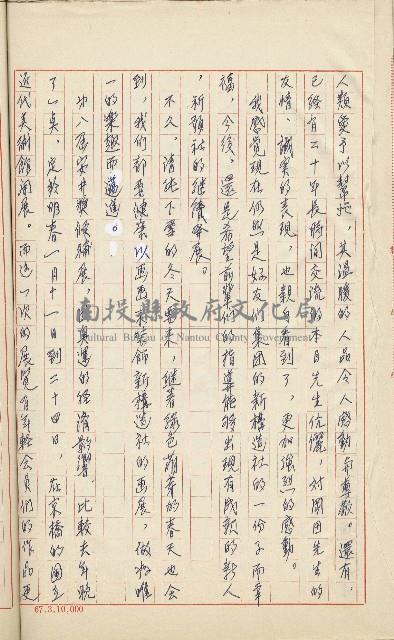 人類愛予以幫忙，其溫暖的人品令人感動和尊敬。還有，
已經有二十年長時間交流的本目先生伉儷，對團田先生的
友情、誠實的表現，也親自看到了，更加強烈的感動。
我感覺現在仍照是好友集團的新構造社的一份子而幸
福，今後，還是希望前輩們的指導能够出現有成就的新人
，祈願社的繼續發展。
不久，清純下雪的冬天要來，繼著綠色萌芽的春天也會
到，我們都要讓以畫畫裝飾新構造社的畫展，做為唯
一的樂趣而邁進。
第八屆安井獎候補展，因輿論的經濟影響，比較去年晚
了一奌，定於明春一月十一日到二十四日，在京橋的國立
近代美術館開展。而這一次的展覽有年輕會員們的作品更
南投縣政府文化局
Cultural Bureau of Nantou County Government
67.3.10,000